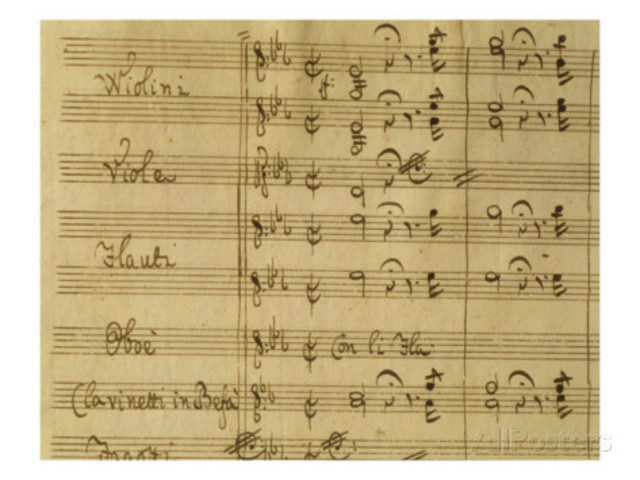 Wiolini
f:
Viole
Flauti
Oboè
Con li Fla:
Clarinetti in Befà
Fagotti
AllPosters